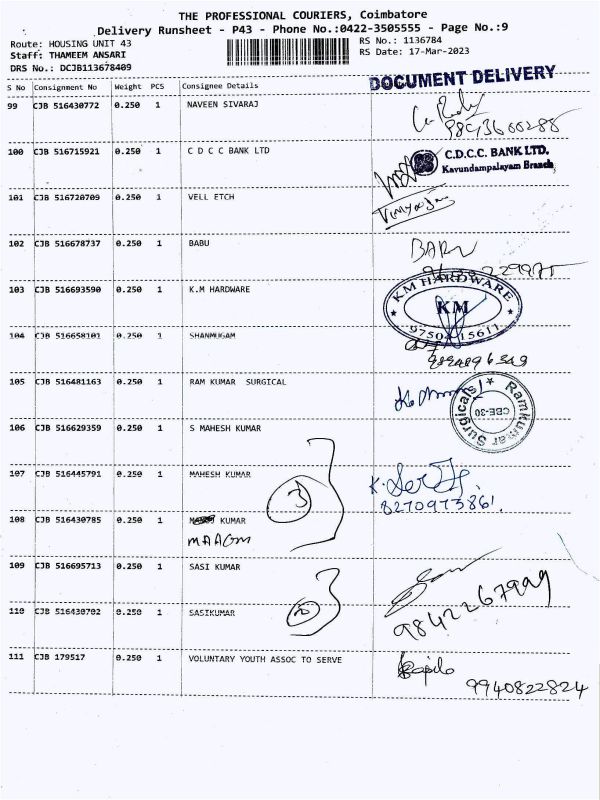 THE PROFESSIONAL COURIERS, Coimbatore
Delivery Runsheet - P43 - Phone No.:0422-3505555 - Page No.:9
Route: HOUSING UNIT 43
Staff: THAMEEM ANSARI
DRS No.: DCJB113678409
RS No.: 1136784
RS Date: 17-Mar-2023
DOCUMENT DELIVERY
S No Consignment No Weight PCS Consignee Details
99 CJB 516430772 0.250 1 NAVEEN SIVARAJ
100 CJB 516715921 0.250 1 C D C C BANK LTD
C.D.C.C. BANK LTD.
Kavundampalayam Branch
101 CJB 516720709 0.250 1 VELL ETCH
102 CJB 516678737 0.250 1 BABU
BABU
103 CJB 516693590 0.250 1 K.M HARDWARE
KM HARDWARE
KM
97504 15611
104 CJB 516658101 0.250 1 SHANMUGAM
105 CJB 516481163 0.250 1 RAM KUMAR SURGICAL
Ramkumar Surgicals
CBE-30
106 CJB 516629359 0.250 1 S MAHESH KUMAR
107 CJB 516445791 0.250 1 MAHESH KUMAR
3
8270973861
108 CJB 516430785 0.250 1 KUMAR
109 CJB 516695713 0.250 1 SASI KUMAR
110 CJB 516430782 0.250 1 SASIKUMAR
2
111 CJB 179517 0.250 1 VOLUNTARY YOUTH ASSOC TO SERVE
9940822824